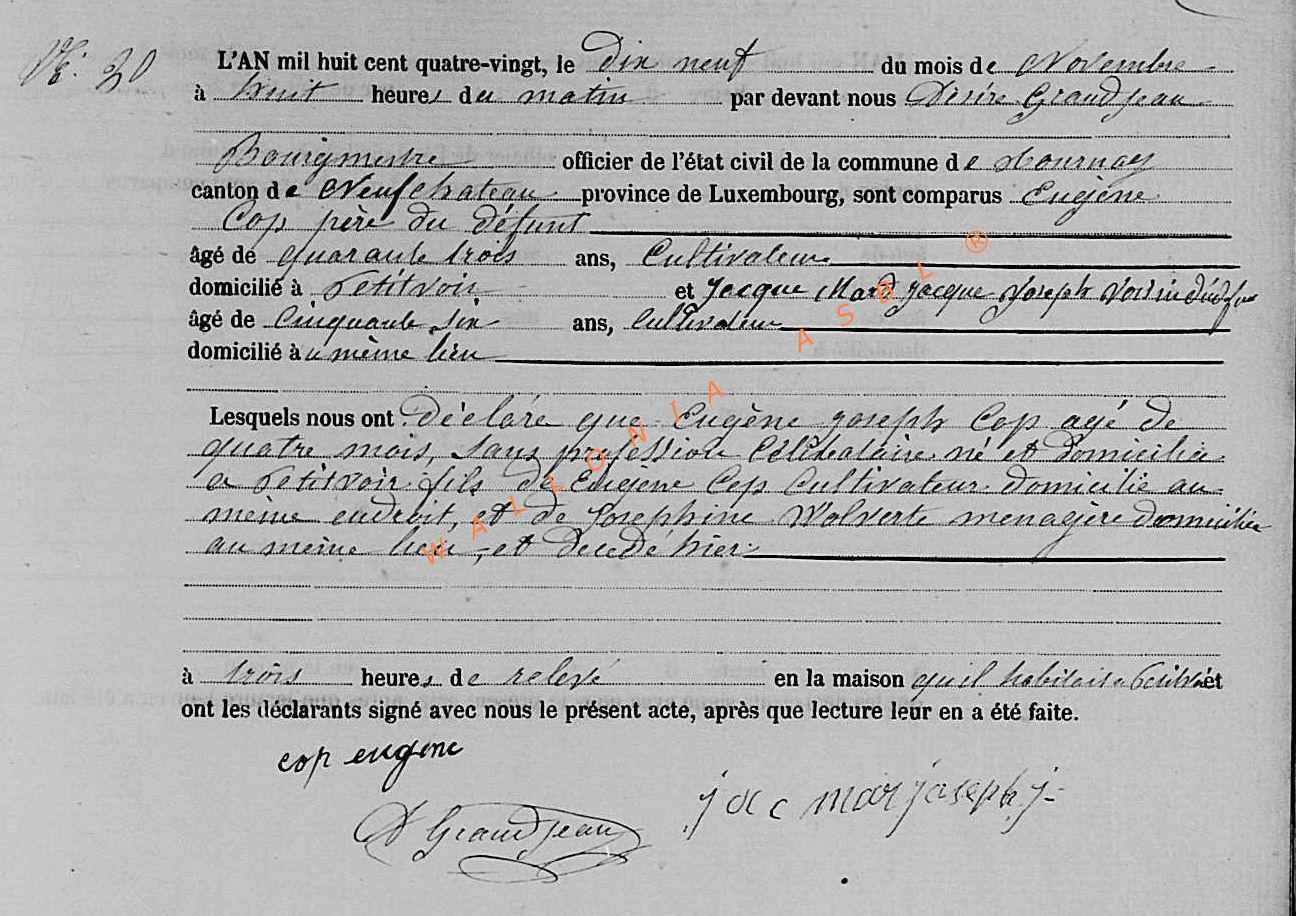 N° 20
L'AN mil huit cent quatre-vingt, le dix neuf du mois de Novembre
à huit heures du matin par devant nous Désiré Grandjean
Bourgmestre officier de l'état civil de la commune de Tournay
canton de Neufchateau province de Luxembourg, sont comparus Eugène
Cop père du défunt
âgé de quarante trois ans, Cultivateur
domicilié à Petitvoir et Jacque Mard Jacque Joseph voisin du défun
âgé de Cinquante six ans, Cultivateur
domicilié au même lieu
Lesquels nous ont déclaré que Eugène Joseph Cop agé de
quatre mois, sans profession Célibataire né et domicilié
a Petitvoir fils de Eugène Cop Cultivateur domicilié au
même endroit, et de Josephine Wolverte menagère domicilié
au même lieu, et decedé hier
à trois heures de relevé en la maison qu'il habitait a Petitvoi et
ont les déclarants signé avec nous le présent acte, après que lecture leur en a été faite.
cop eugene
jac mar joseph j
D Grandjean
WALLONIA ASBL ®